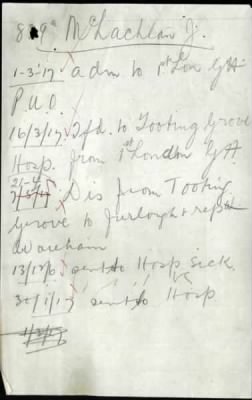 819ª McLachlan J.
1-3-17. adm to 1st Lon GH
P.U.O.
16/3/17. Tfd. to Tooting Grove
Hosp. from 1st London GH
21-4-
Dis from Tooting
Grove to furlough & rep
Wareham
13/12/6 sent to Hosp sick
30/1/17 sent to Hosp